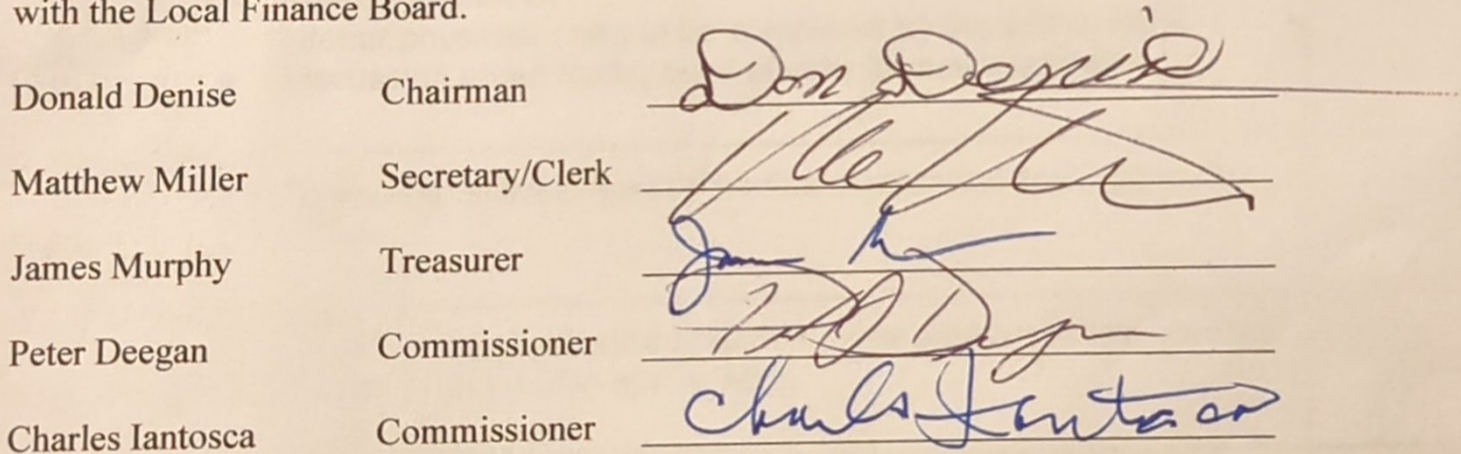 with the Local Finance Board.
Donald Denise Chairman Don Denise
Matthew Miller Secretary/Clerk
James Murphy Treasurer
Peter Deegan Commissioner
Charles Iantosca Commissioner Charles Iantosca